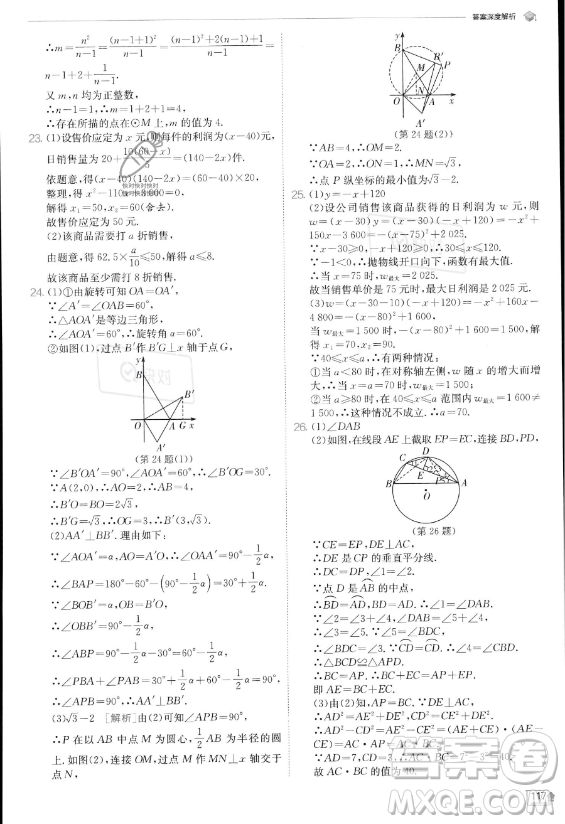 答案深度解析
∴m=n²/(n-1)=((n-1+1)²)/(n-1)=((n-1)²+2(n-1)+1)/(n-1)=
n-1+2+1/(n-1).
又 m,n 均为正整数,
∴n-1=1,∴m=1+2+1=4,
∴存在所描的点在⊙M上,m 的值为 4.
23. (1)设售价应定为 x 元,则每件的利润为(x-40)元,
日销售量为20+10(60-x)/5=(140-2x)件.
依题意,得(x-40)(140-2x)=(60-40)×20,
整理,得 x²-110x+3 000=0,
解得 x₁=50,x₂=60(舍去).
故售价应定为 50 元.
(2)设该商品需要打 a 折销售,
由题意,得 62.5×a/10≤50,解得 a≤8.
故该商品至少需打 8 折销售.
24. (1)①由旋转可知 OA=OA′,
∵∠A′=∠OAB=60°,
∴△AOA′是等边三角形,
∴∠AOA′=60°,∴旋转角 α=60°.
②如图(1),过点 B′作 B′G⊥x 轴于点 G,
y
B
B′
O
A
G
x
A′
(第 24 题(1))
∵∠B′OA′=90°,∠AOA′=60°,
∴∠B′OG=90°-60°=30°.
∵A(2,0),∴OA=2,
∴OB′=OB=√3OA=2√3,
∴B′G=√3,∴OG=3,∴B′(3,√3).
(2)AA′⊥BB′. 理由如下:
∵∠OAA′=α,OA=OA′,∴∠OAA′=90°-1/2α,
∴∠BAP=180°-60°-(90°-1/2α)=30°+1/2α.
∵∠BOB′=α,OB=OB′,∴∠OBB′=90°-1/2α,
∴∠ABP=90°-1/2α-30°=60°-1/2α,
∴∠APB=180°-(30°+1/2α)-(60°-1/2α)=
90°,∴AA′⊥BB′.
(3)√3-2 [解析]由(2)可知,∠APB=90°,
∴P 在以 AB 中点 M 为圆心,1/2AB 为半径的圆
上.如图(2),连接 OM,过点 M 作 MN⊥x 轴于
点 N,
y
B
B′
M
P
O
N
A
x
A′
(第 24 题(2))
∵AB=4,∴OM=2.
∵OA=2,∴ON=1,∴MN=√3,
∴点 P 纵坐标的最小值为√3-2.
25. (1)y=-x+120
(2)设公司销售该商品获得的日利润为 w 元,则
w=(x-30)y=(x-30)(-x+120)=-x²+
150x-3 600=-(x-75)²+2 025.
∵x-30≥0,-x+120≥0,∴30≤x≤120.
∵-1<0,∴抛物线开口向下,函数有最大值,
∴当 x=75 时,w最大=2 025.
故当销售单价是 75 元时,最大日利润是 2 025 元.
(3)w=(x-30-10)(-x+120)=-x²+160x-
4 800=-(x-80)²+1 600.
当 w最大=1 500 时,-(x-80)²+1 600=1 500,
解得 x₁=70,x₂=90.
∵40≤x≤a,∴有两种情况:
①当 a<80 时,在对称轴左侧,w 随 x 的增大而增
大,∴当 x=a=70 时,w最大=1 500;
②当 a≥80 时,在 40≤x≤a 范围内 w最大=1 600≠
1 500,∴这种情况不成立.∴a=70.
26. (1)∠DAB
(2)如图,在线段 AE 上截取 EP=EC,连接 BD,PD,
C
D
E
P
B
O
A
(第 26 题)
∵CE=PE,DE⊥AC,
∴DE 是 CP 的垂直平分线.
∴CD=DP,∴∠1=∠2.
∵点 D 是 AB 的中点,
∴BD=AD,∴BD=AD,∠4=∠5.
∵∠2=∠3+∠4,∠1=∠2=∠5+∠DBC,
∴∠3=∠DBC.
∴△BCD≌△APD.
∴BC=AP.∴CE+BC=EP+AP.
即 AE=BC+CE.
(3)由(2)知,AP=BC,EP=CE.
∵AD²=AE²+DE²,CD²=DE²+CE²,
∴AD²-CD²=AE²-CE²=(AE+CE)(AE-
CE)=AC·AP=AC·BC.
故 AC·BC 的值为 40.
117